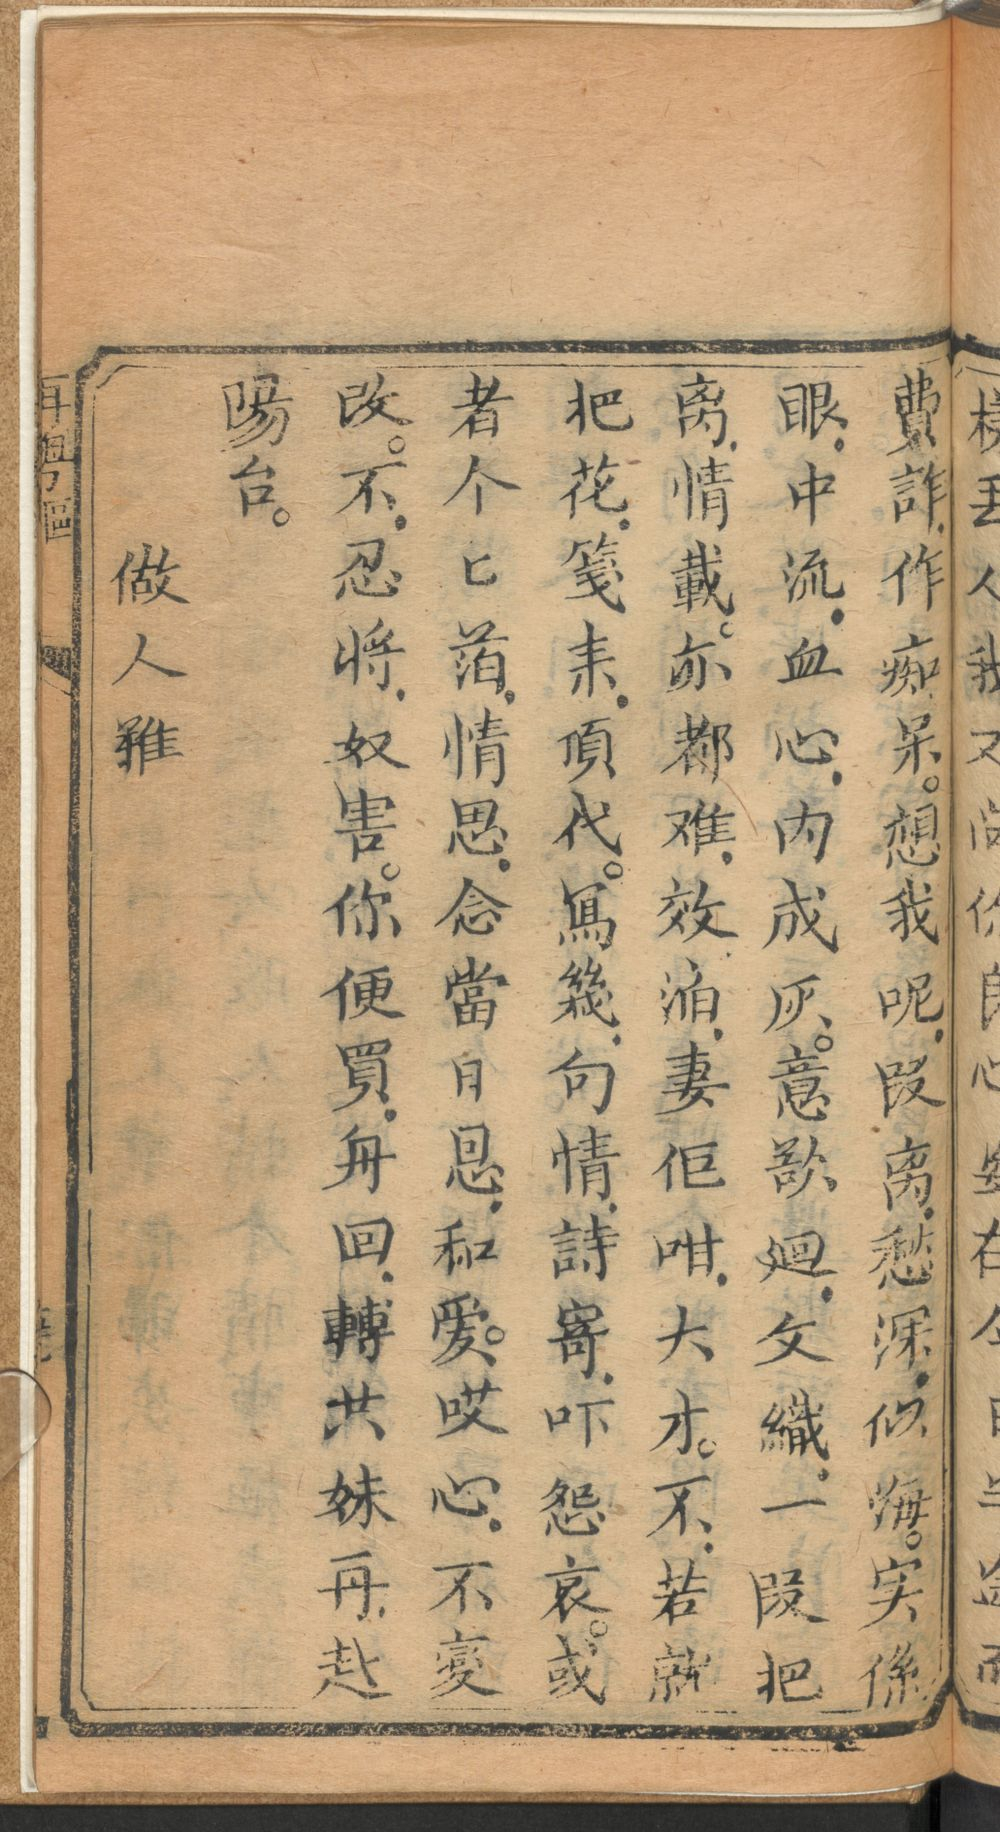 費詐作痴呆。想我呢段离愁深似海。实係
眼中流血心內成灰。意欲廻文織一段把
离情載。亦都难效洎妻佢咁大才。不若就
把花箋来頂代。寫幾句情詩寄吓怨哀。或
者个匕萡情思念當日恩和爱。哎心不变
改。不忍將奴害。你便買舟回轉共妹再赴
陽台。
做人难